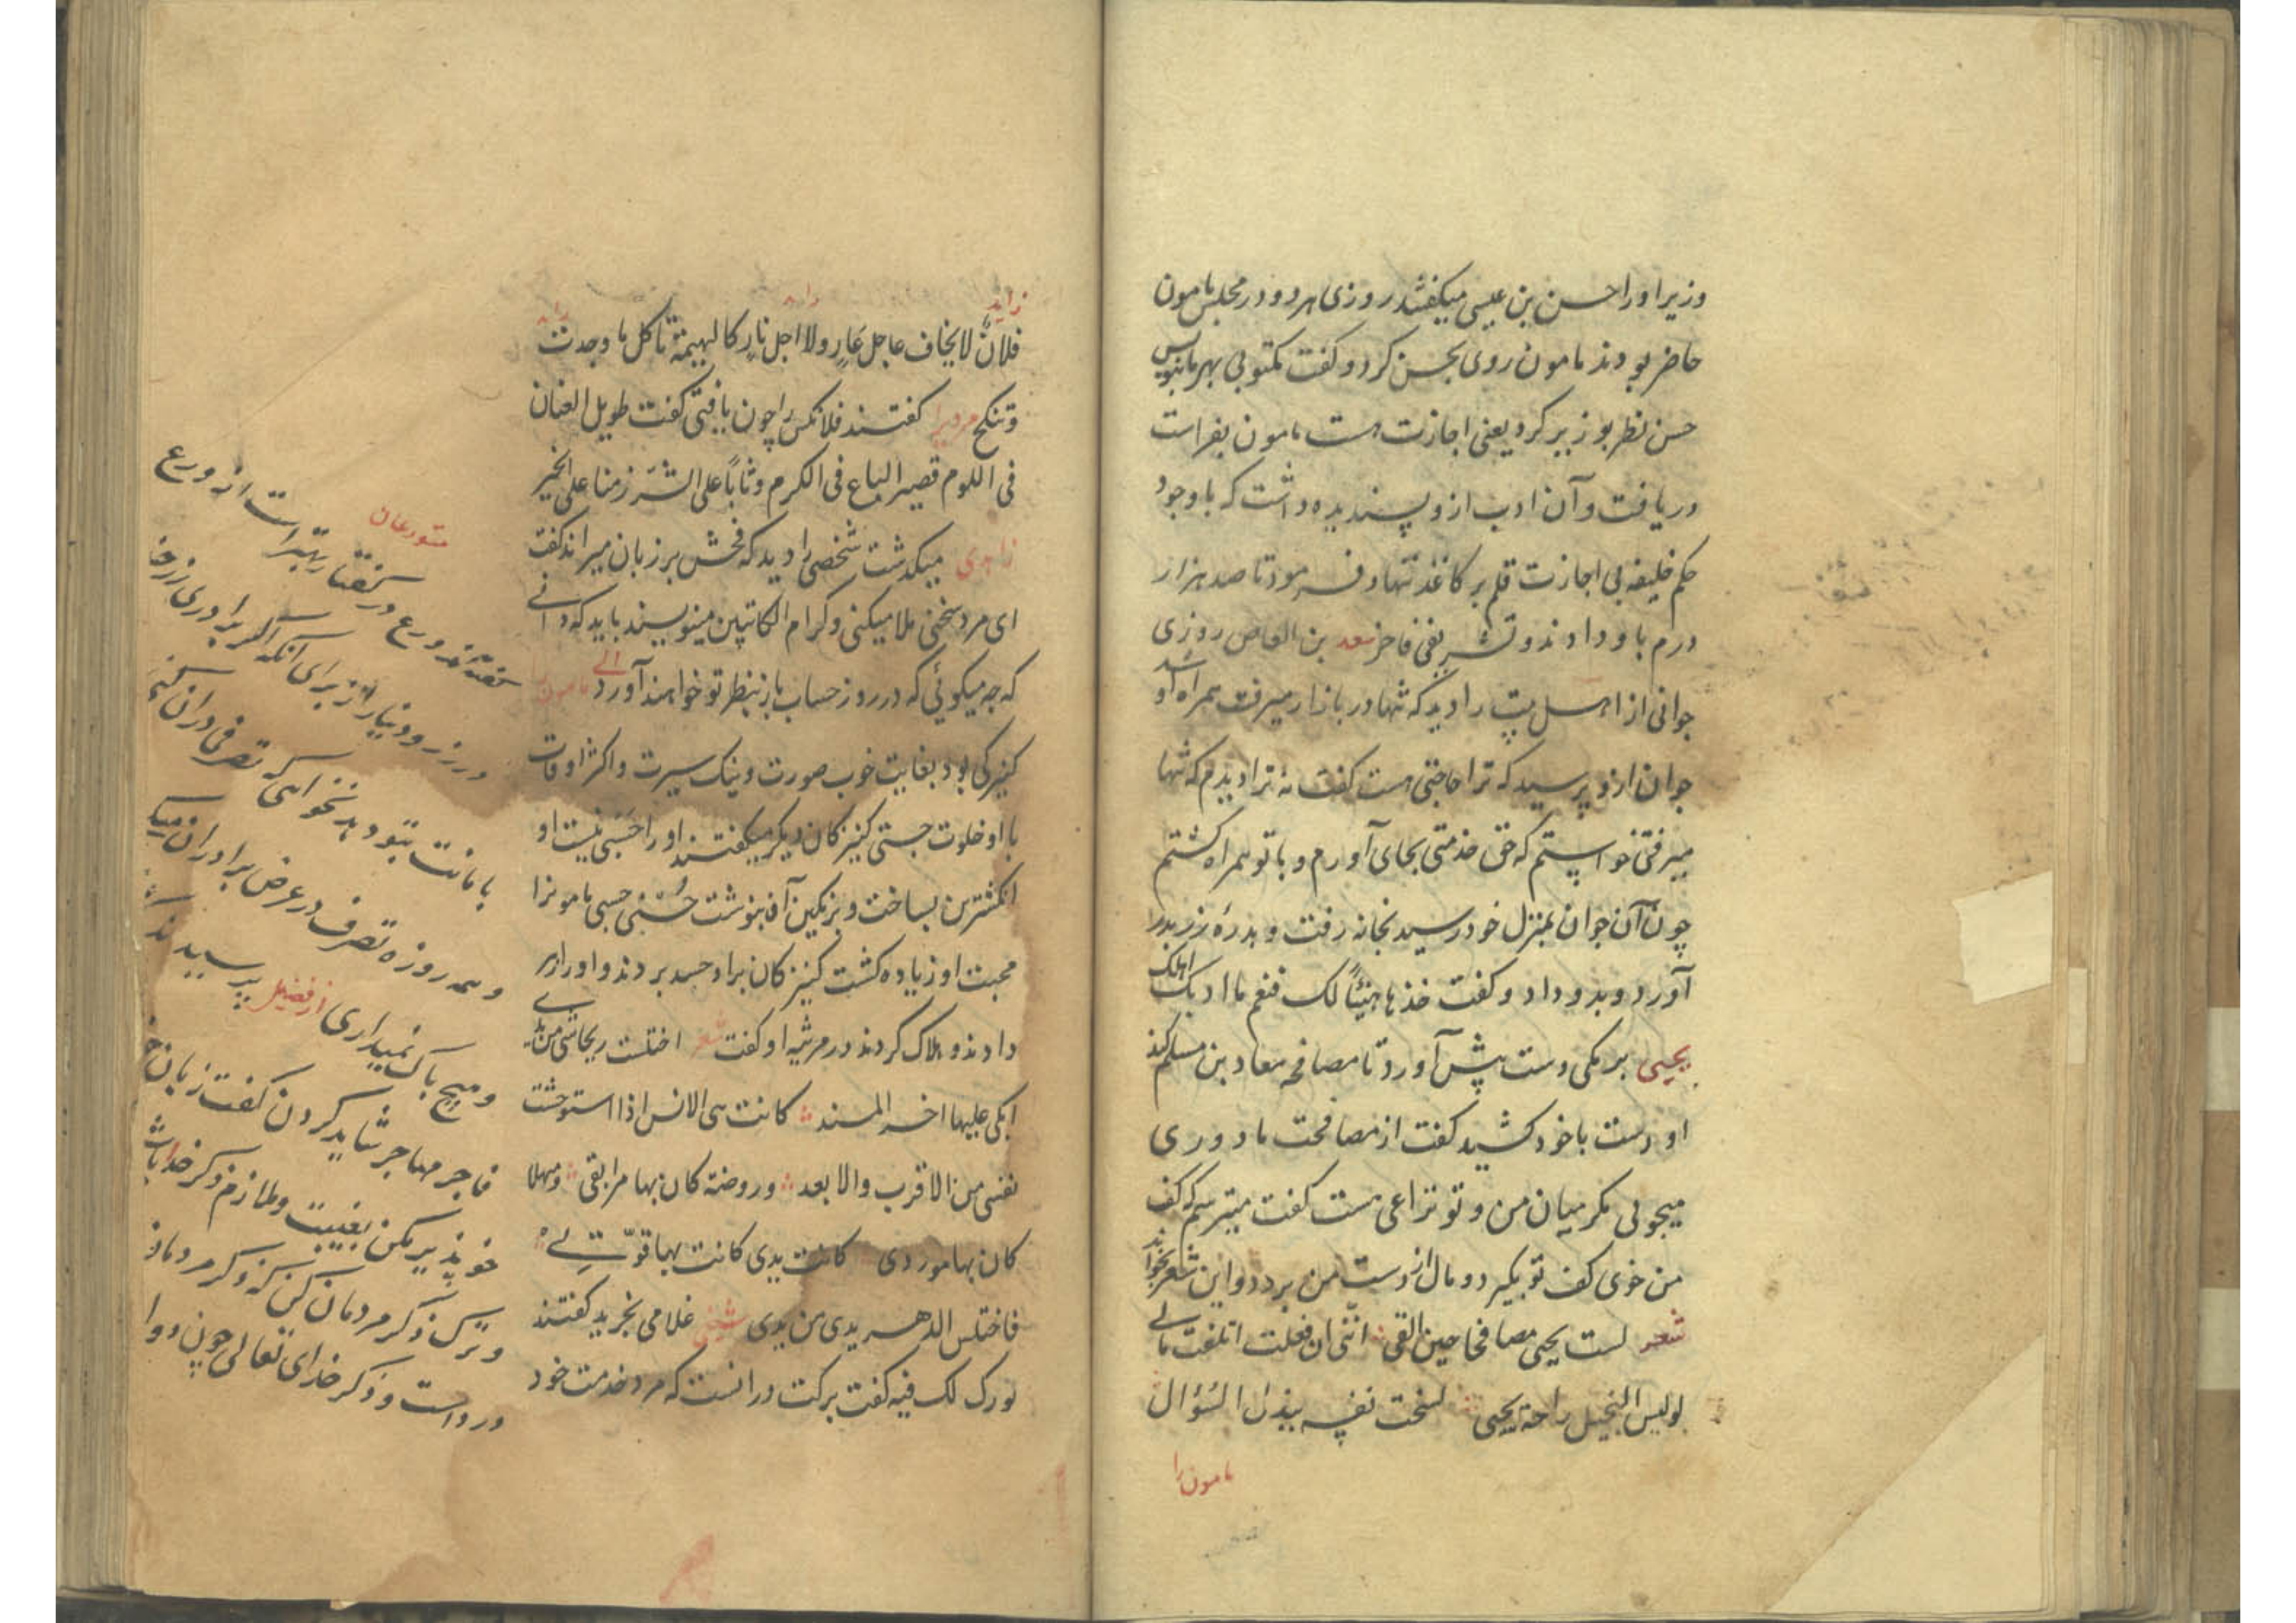 وزیر او را حسن بن عیسی میکفتند روزی هر دو در مجلس مامون
حاضر بودند مامون روی بحسن کرد و کفت مکتوبی بهر ما بنویس
حسن نظر بوزیر کرد یعنی اجازت هست مامون بفراست
دریافت و آن ادب ازو پسندیده داشت که با وجود
حکم خلیفه بی اجازت قلم بر کاغذ ننهاد فرمود تا صد هزار
درم باو دادند و تشریفی فاخر سعد بن العاص روزی
جوانی از اهل بیت را دید که تنها در بازار میرفت همراه او شد
جوان ازو پرسید که ترا حاجتی هست کفت نه ترا دیدم که تنها
میرفتی خواستم که حق خدمتی بجای آورم و با تو همراه کشتم
چون آن جوان بمنزل خود رسید بخانه رفت و بدرهٔ زر بدر
آورد و بدو داد و کفت خذها هنیئاً لک فنعم ما ادبک اهلک
یحیی برمکی دست پیش آورد تا مصافحه معاد بن مسلم کند
او دست باخود کشید کفت از مصافحت ما دوری
میجویی مکر میان من و تو نزاعی هست کفت میترسم که کف
من خوی کف تو بکیرد و مال از دست من برد و این شعر بخواند
شعر لست یحیی مصافحا حین القی اننی ان فعلت اتلفت مالی
لو لیس البخیل راحة یحیی لسخت نفسه ببذل السؤال
مامون را
زاید
فلانٌ لا یخاف عاجل عارٍ ولا اجل نارٍ کالبهیمة تاکل ما وجدت
وتنکح مردیرا کفتند فلانکس را چون یافتی کفت طویل العنان
فی اللوم قصیر الباع فی الکرم وثاباً علی الشر زمنا علی الخیر
زاهدی میکذشت شخصی را دید که فحش بر زبان میراند کفت
ای مرد سخنی ملا میکنی و کرام الکاتبین مینویسند باید که دانی
که چه میکوئی که در روز حساب باز بنظر تو خواهند آورد مامون را
کنیزکی بود بغایت خوب صورت و نیک سیرت و اکثر اوقات
با او خلوت جستی کنیزکان دیکر میکفتند او را حَسَبی نیست او
انکشترین بساخت و بر نکین آن بنوشت حُسْنی حسبی مامونرا
محبت او زیاده کشت کنیزکان براو حسد بردند و او را زهر
دادند و هلاک کردند در مرثیه او کفت شعر اختلست ریحانتی من یدی
ابکی علیها اخر المسند کانت هی الانس اذا استوحشت
نفسی من الاقرب والابعد وروضة کان بها مرابقی ومنهلا
کان بها موردی کانت یدی کانت بها قوّتی
فاختلس الدهر یدی من یدی شخصی غلامی بخرید کفتند
بورک لک فیه کفت برکت در انست که مرد خدمت خود
متورعان
کفته‌اند ورع در کفتار بهتر است از ورع
در زر و دینار از برای انکه اکر برادری زر خود
بامانت بتو دهد نخواهی که تصرفی در آن کنی
و همه روزه تصرف در عرض برادران میکنی
و هیچ باک نمیداری از فضیل پرسیدند
فاجر مهاجر شاید کردن کفت زبان خود
خو پذیر مکن بغیبت و ملازم ذکر خدا باش
و ترک ذکر مردمان کن که ذکر مردمان
درد است و ذکر خدای تعالی چون دوا